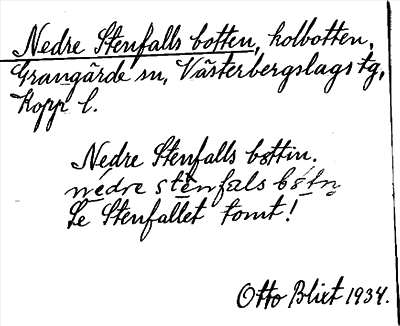 Nedre Stenfalls botten, kolbotten,
Grangärde sn, Västerbergslags tg,
Kopp l.
Nedre Stenfalls bottin.
nedre stenfals
Se Stenfallet tomt!
Otto Blixt 1934.